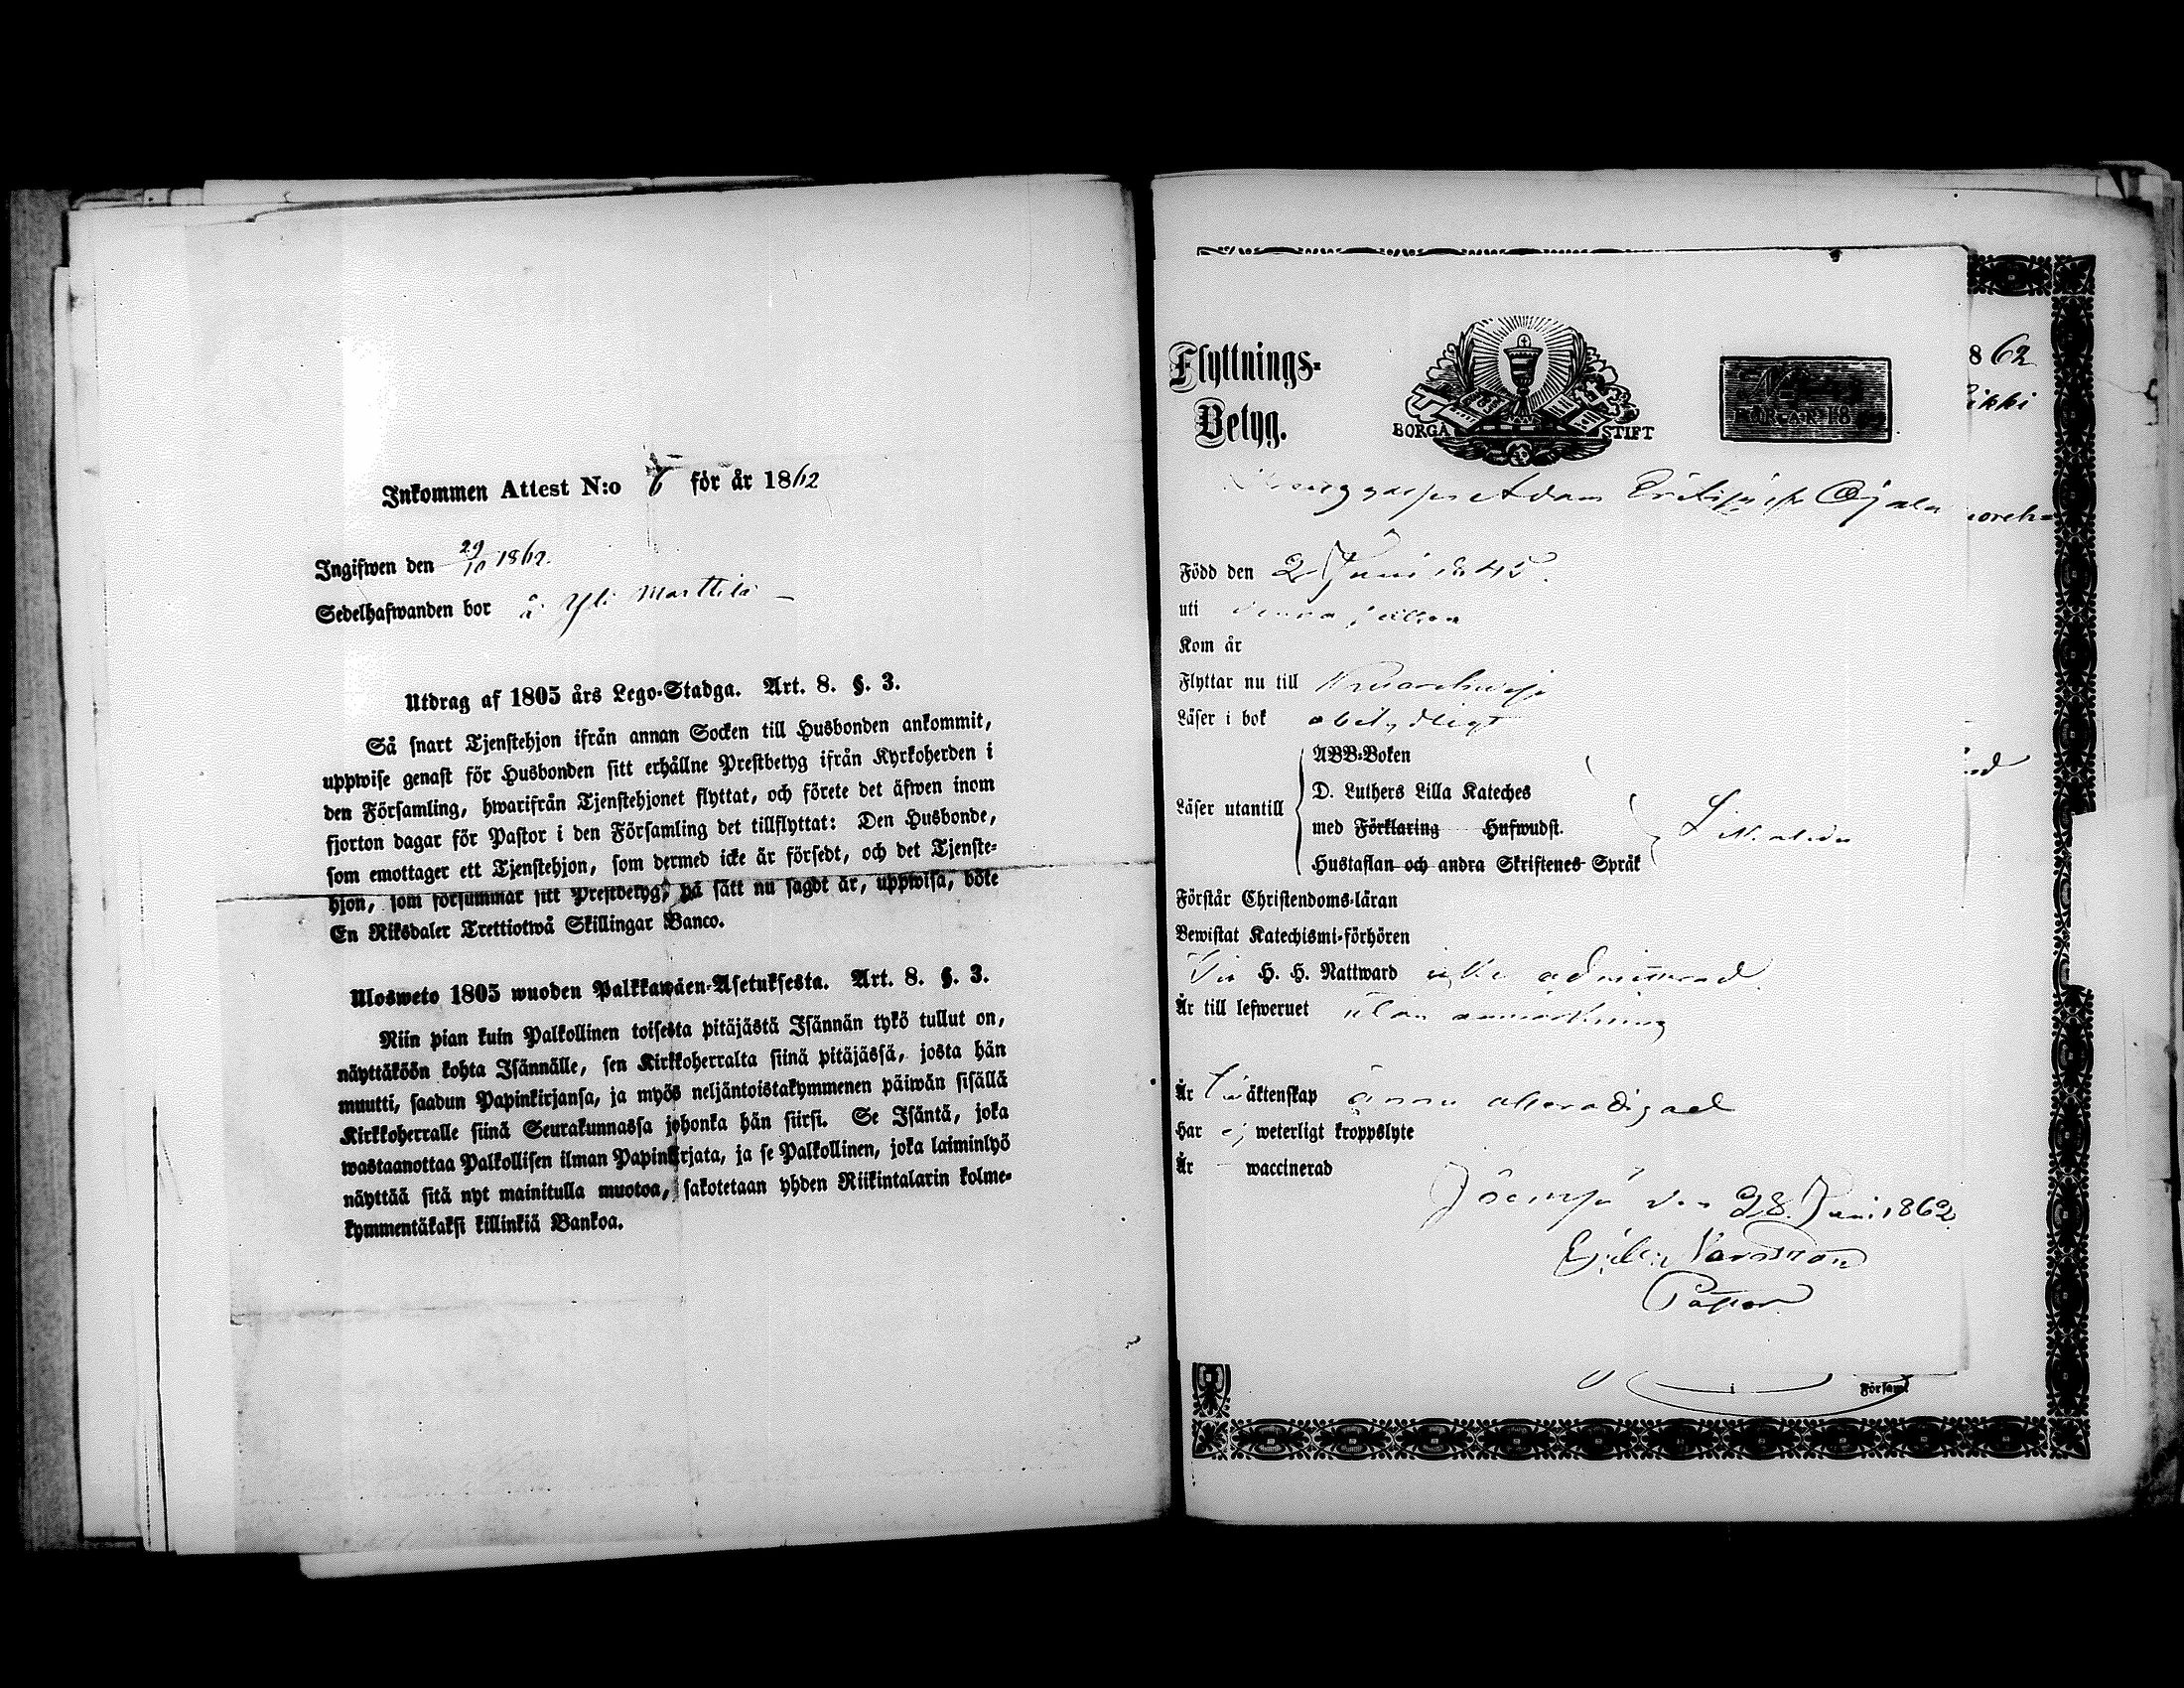 Inkommen Attest N:o 6 för år 1862
Ingifwen den 29/10 1862.
Sedelhafwanden bor å Yli Marttila
Utdrag af 1805 års Lego-Stadga. Art. 8. §. 3.
Så snart Tjenstehjon ifrån annan Socken till Husbonden ankommit,
uppwise genast för Husbonden sitt erhållne Prestbetyg ifrån Kyrkoherden i
den Församling, hwarifrån Tjenstehjonet flyttat, och förete det äfwen inom
fjorton dagar för Pastor i den Församling det tillflyttat: Den Husbonde,
som emottager ett Tjenstehjon, som dermed icke är försedt, och det Tjenste-
hjon, som försummar sitt Prestbetyg, på sätt nu sagdt är, uppwisa, böte
En Riksdaler Trettiotwå Skillingar Banco.
Ulosweto 1805 wuoden Palkkawäen-Asetuksesta. Art. 8. §. 3.
Niin pian kuin Palkollinen toisesta pitäjästä Isännän tykö tullut on,
näyttäköön kohta Isännälle, sen Kirkkoherralta siinä pitäjässä, josta hän
muutti, saadun Papinkirjansa, ja myös neljäntoistakymmenen päiwän sisällä
Kirkkoherralle siinä Seurakunnassa johonka hän siirsi. Se Isäntä, joka
wastaanottaa Palkollisen ilman Papinkirjata, ja se Palkollinen, joka laiminlyö
näyttää sitä nyt mainitulla muotoa, sakotetaan yhden Riikintalarin kolme-
kymmentäkaksi killinkiä Bankoa.
Flyttnings-
Betyg.
BORGÅ STIFT
862
ikki
Adam Eriksson Ojala
Född den 2 Juni 1845.
uti denna
Kom år
Flyttar nu till
Läser i bok obetydligt
Läser utantill
ABB-Boken
D. Luthers Lilla Kateches
med Förklaring Hufwudst.
Hustaflan och andra Skriftenes Språk
Förstår Christendoms-läran
Bewistat Katechismi-förhören
Till H. H. Nattward icke admitterad
Är till lefwernet utan anmärkning
Är till äktenskap ännu
Har ej weterligt kroppslyte
Är waccinerad
den 28 Juni 1862
Pastor
i Församl